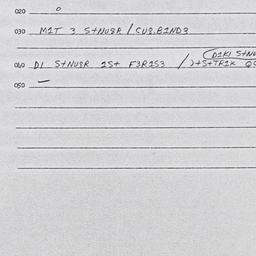 020 0
030 MIT 3 S+NUBR / CUB.BIND3
(DIKI S+NU
040 DI S+NUBR IS+ F3RIS3 / )+S+TRIK
050 —